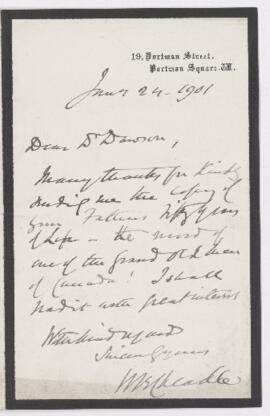 19, Portman Street,
Portman Square. W.
Jany 24. 1901
Dear Dr Dawson,
Many thanks for kindly
sending me the copy of
your Fathers Fifty years
of Life - the record of
one of the grand old men
of Canada! I shall
read it with great interest
With kind regards
Sincerely yours
W B Cheadle